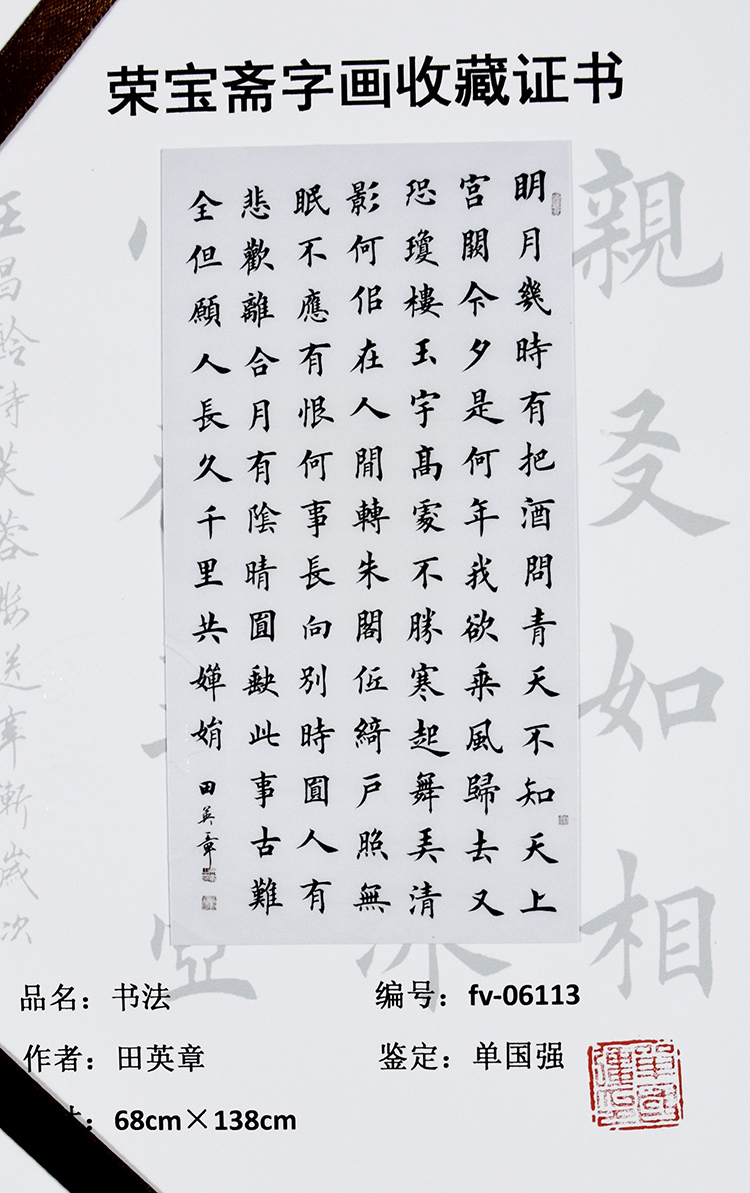 荣宝斋字画收藏证书
明月幾時有把酒問青天不知天上
宮闕今夕是何年我欲乘風歸去又
恐瓊樓玉宇高處不勝寒起舞弄清
影何佀在人間轉朱閣低綺戶照無
眠不應有恨何事長向別時圓人有
悲歡離合月有陰晴圓缺此事古難
全但願人長久千里共嬋娟
田英章
親友如相
冰
壺
王昌齡詩芙蓉樓送辛漸歲次
品名：书法
编号：fv-06113
作者：田英章
鉴定：单国强
寸：68cm×138cm